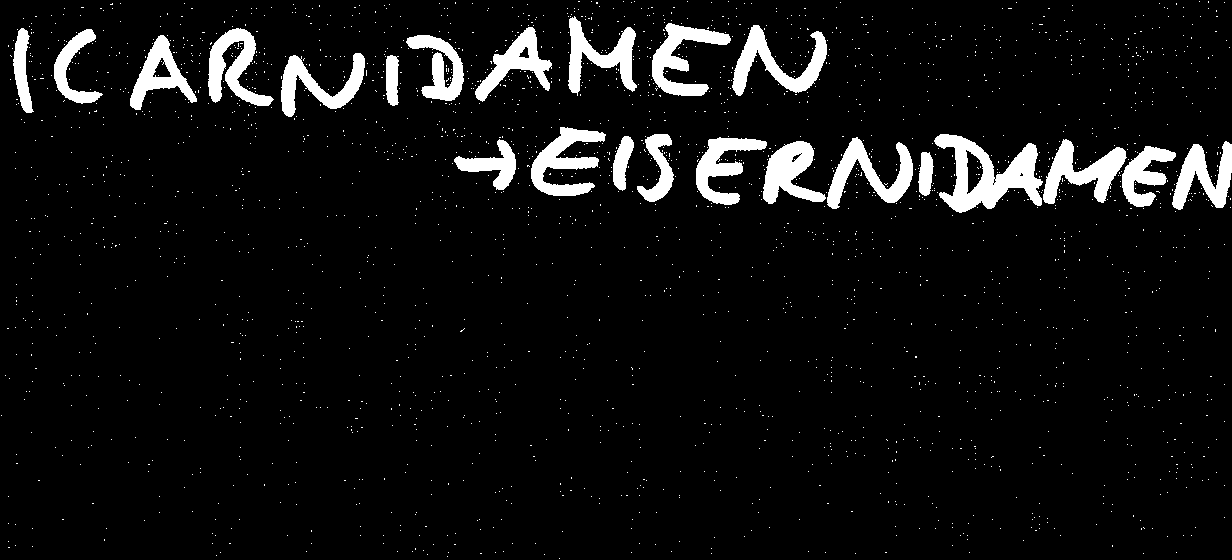 ICARNIDAMEN
→EISERNIDAMEN